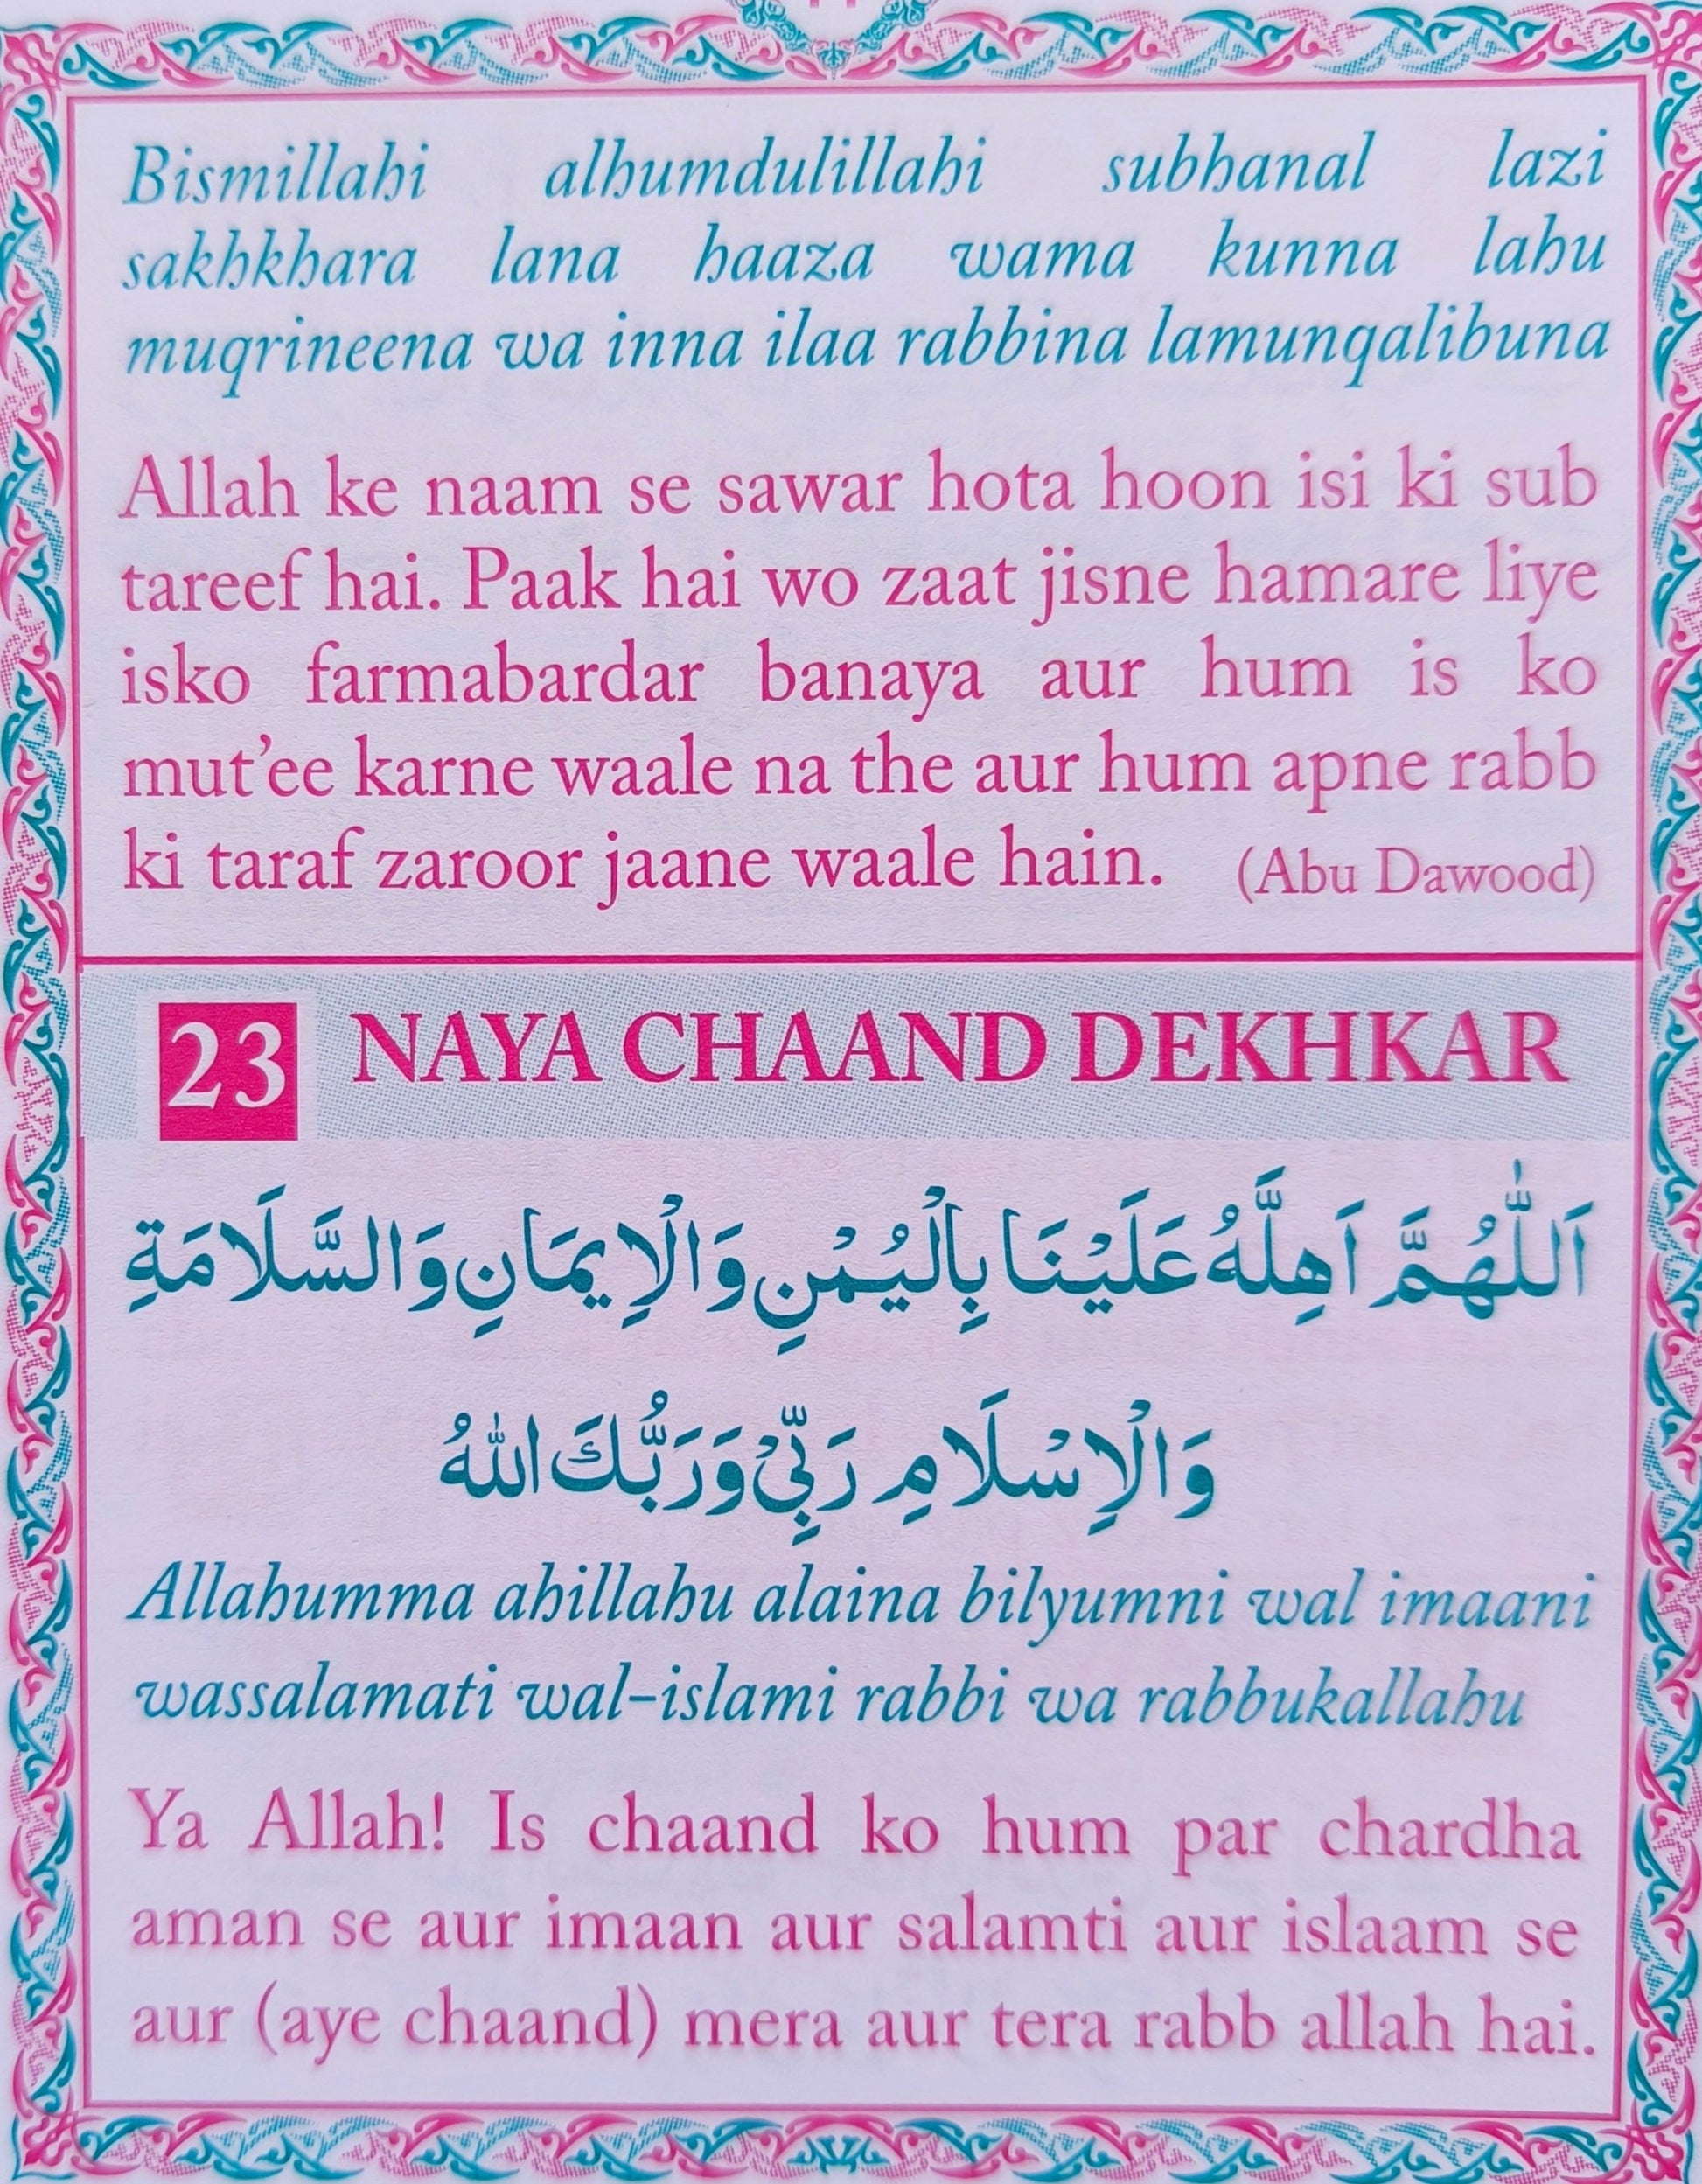 Bismillahi alhumdulillahi subhanal lazi
sakhkhara lana haaza wama kunna lahu
muqrineena wa inna ilaa rabbina lamunqalibuna
Allah ke naam se sawar hota hoon isi ki sub
tareef hai. Paak hai wo zaat jisne hamare liye
isko farmabardar banaya aur hum is ko
mut’ee karne waale na the aur hum apne rabb
ki taraf zaroor jaane waale hain. (Abu Dawood)
23 NAYA CHAAND DEKHKAR
اَللّٰهُمَّ اَهِلَّهُ عَلَيْنَا بِالْيُمْنِ وَالْاِيمَانِ وَالسَّلَامَةِ
وَالْاِسْلَامِ رَبِّيْ وَرَبُّكَ اللهُ
Allahumma ahillahu alaina bilyumni wal imaani
wassalamati wal-islami rabbi wa rabbukallahu
Ya Allah! Is chaand ko hum par chardha
aman se aur imaan aur salamti aur islaam se
aur (aye chaand) mera aur tera rabb allah hai.